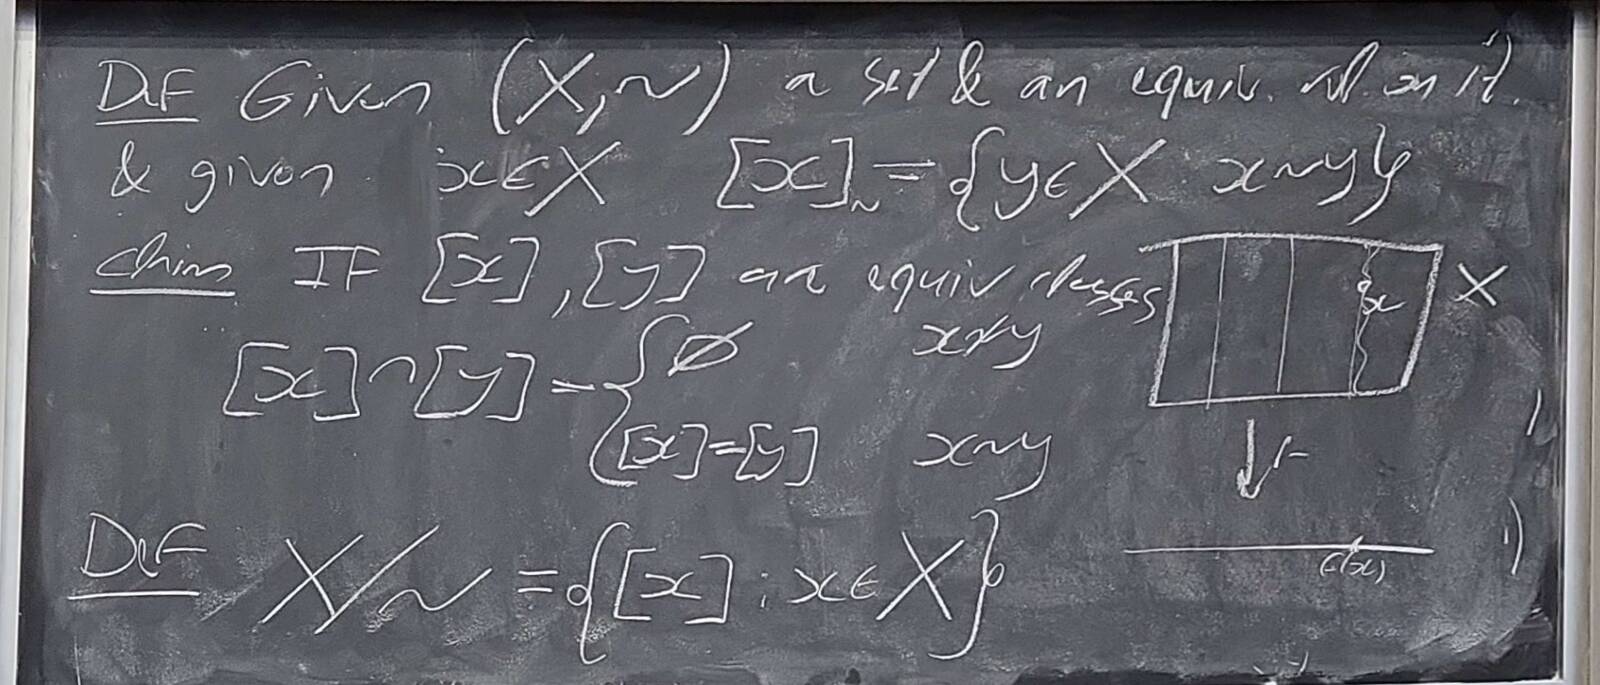 DEF Given (X,~) a set & an equiv. rel. on it.
& given x∈X [x]~ = {y∈X x~y}
claim IF [x], [y] are equiv classes
[x]∩[y] = { ∅ x≁y
[x]=[y] x~y
X
x
F
F(x)
DEF X/~ = {[x] : x∈X}